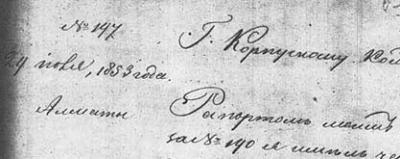 № 147
Г. Корпусному Ком
24 июля, 1853 года.
Алматы
Рапортом моимъ
за № 190 я имѣлъ че